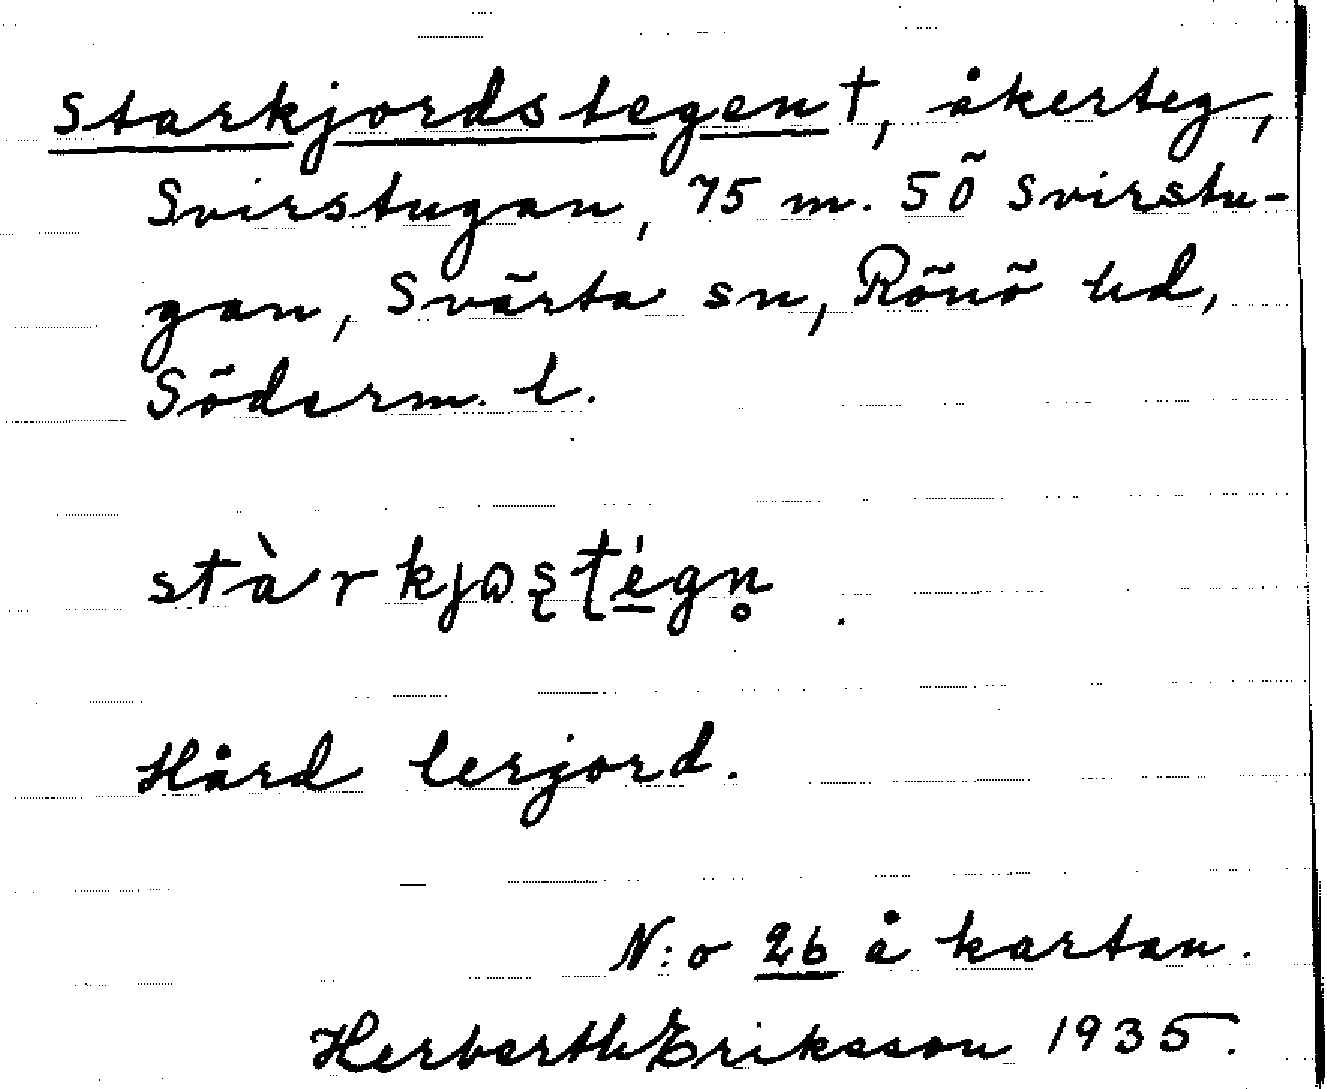 Starkjordstegen †, åkerteg,
Svirstugan, 75 m. SÖ Svirstu-
gan, Svärta sn, Rönö hd,
Söderm. l.
stàrkjɷʂʈég̣n̥
Hård lerjord.
N:o 26 å kartan.
Herberth Eriksson 1935.